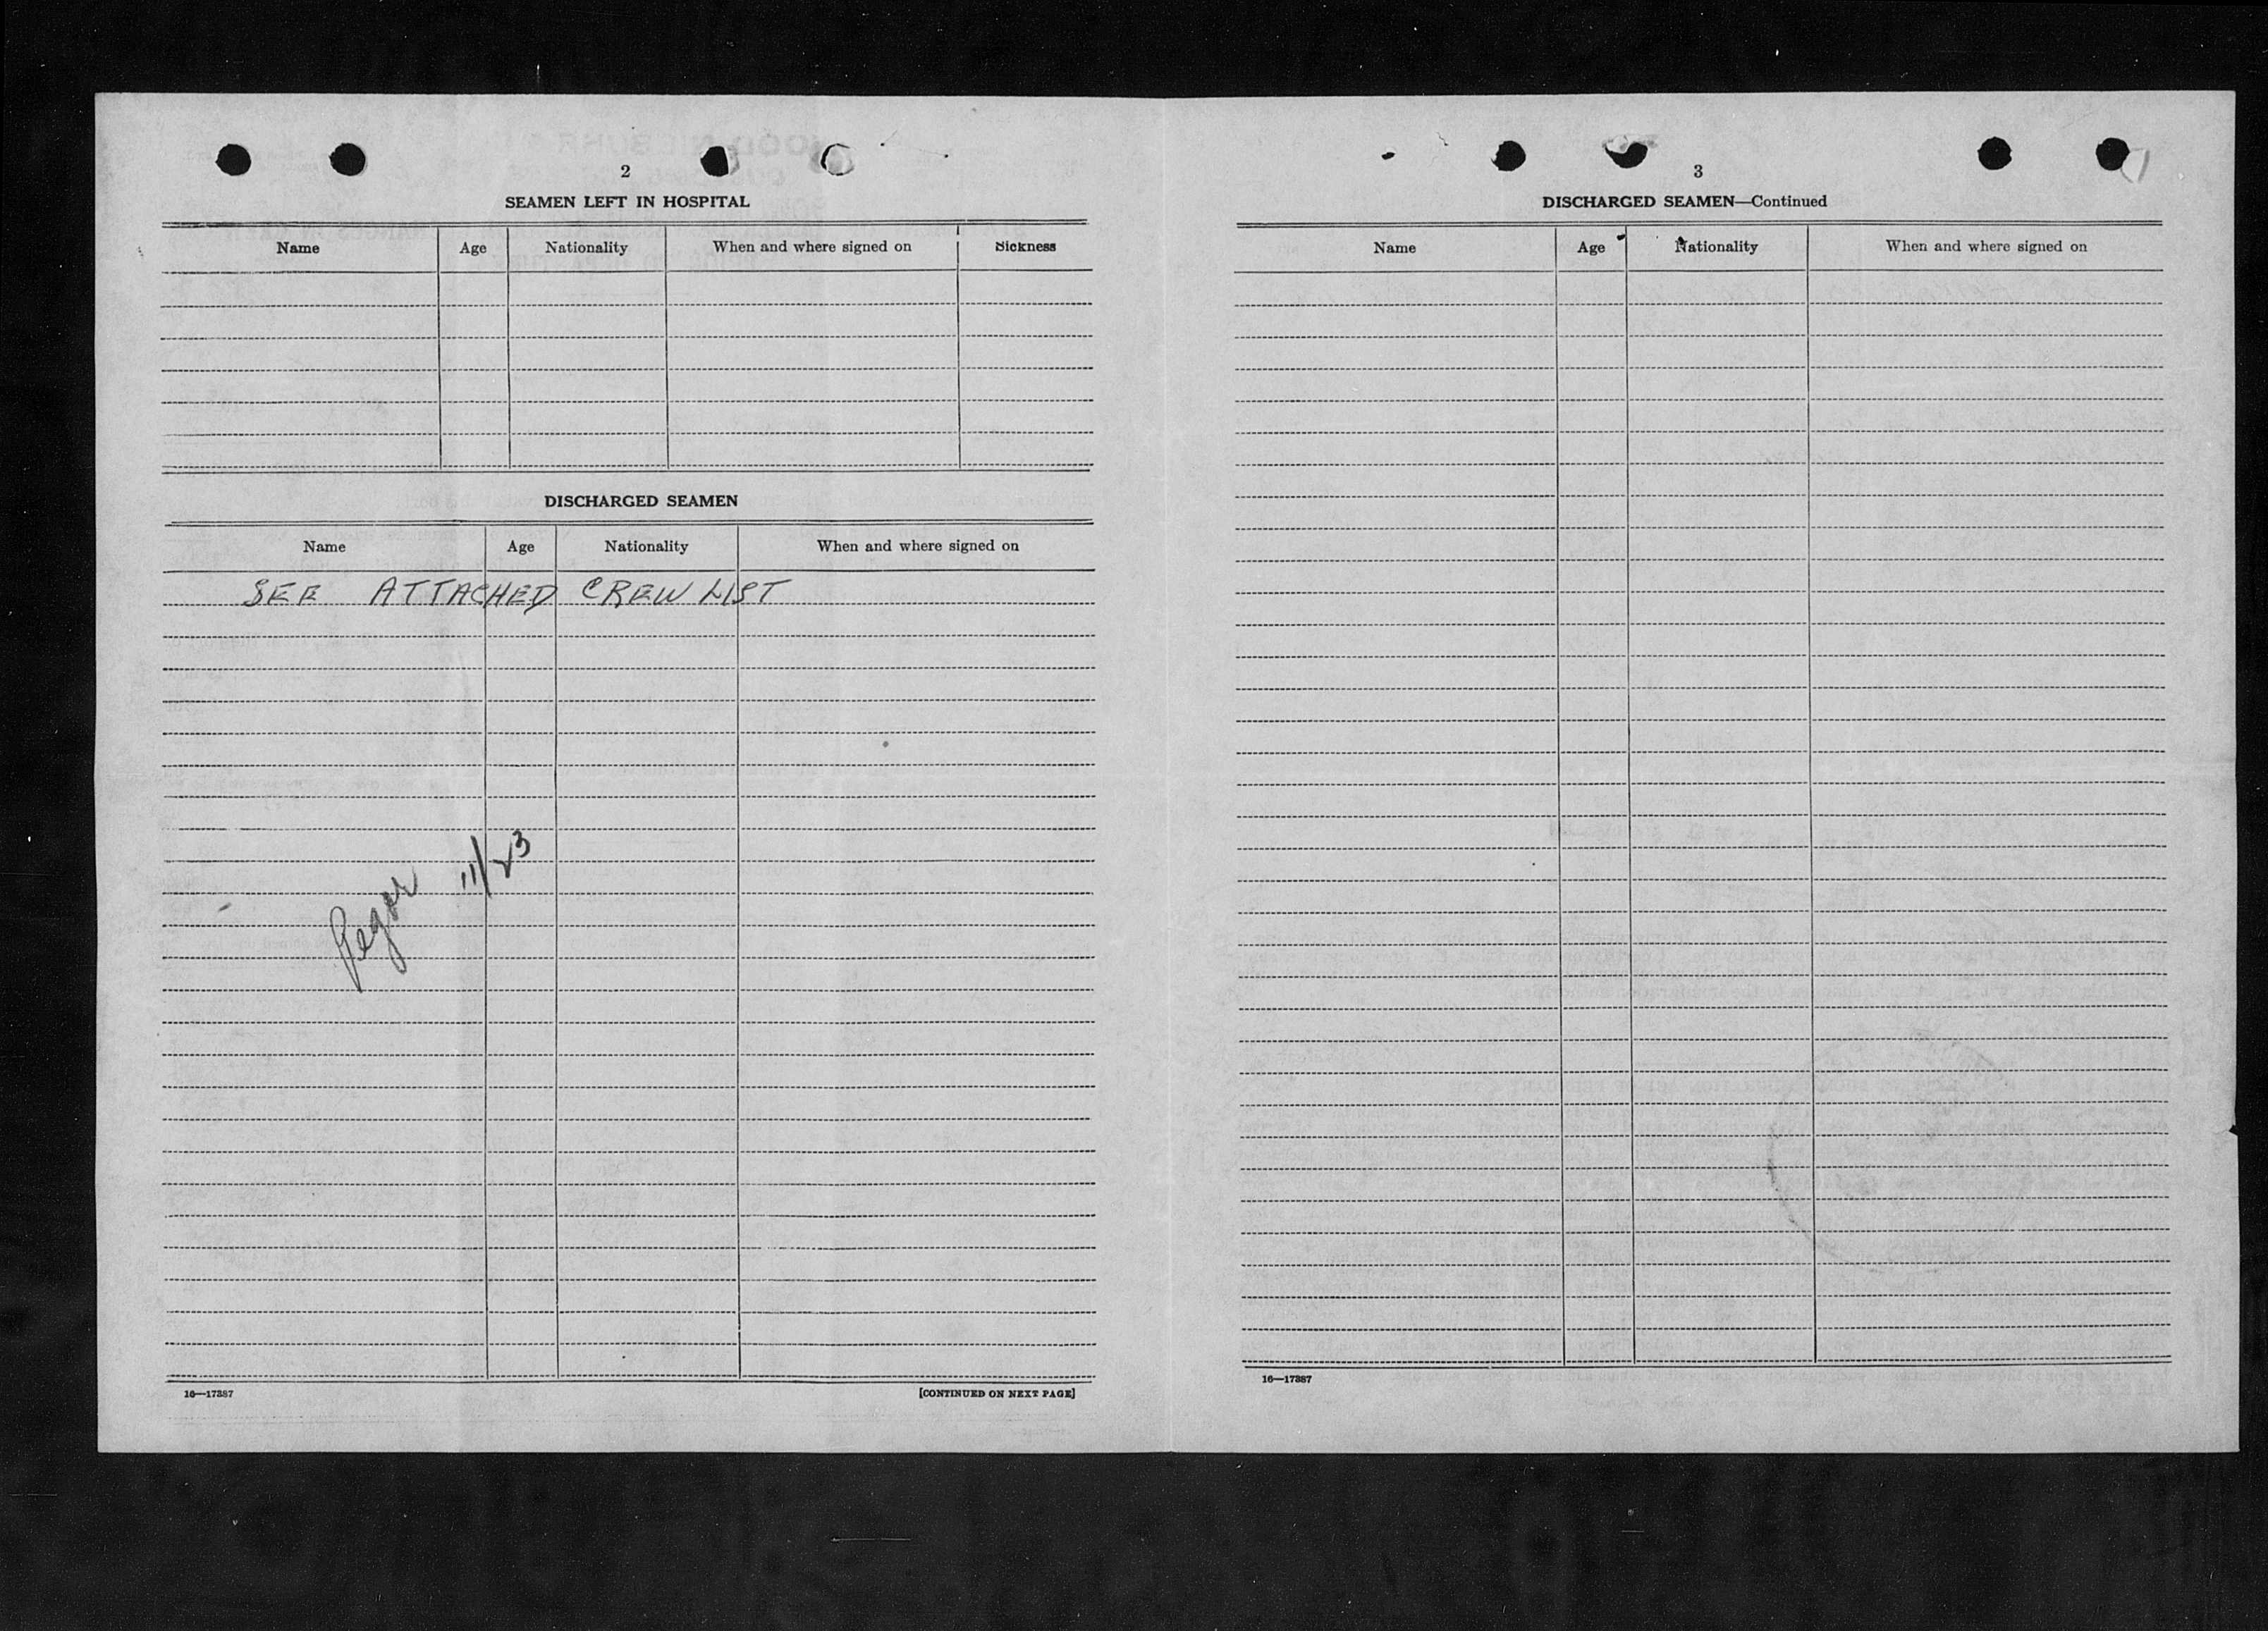 2
SEAMEN LEFT IN HOSPITAL
Name Age Nationality When and where signed on Sickness
DISCHARGED SEAMEN
Name Age Nationality When and where signed on
SEE ATTACHED CREW LIST
11/23
16—17387
[CONTINUED ON NEXT PAGE]
3
DISCHARGED SEAMEN—Continued
Name Age Nationality When and where signed on
16—17387